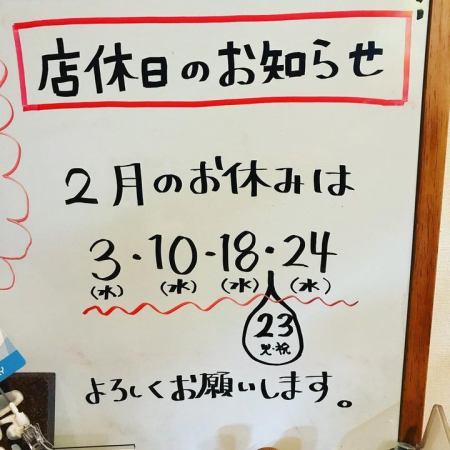 店休日のお知らせ
2月のお休みは
3・10・18・24
(水) (水) (水) (水)
23
火・祝
よろしくお願いします。